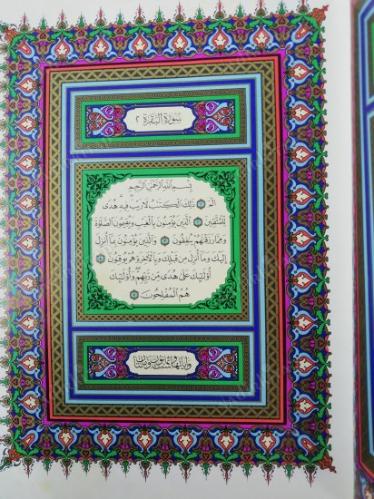 سورة البقرة ٢
بسم الله الرحمن الرحيم
الٓمٓ ١ ذَٰلِكَ ٱلْكِتَٰبُ لَا رَيْبَ فِيهِ هُدًى
لِّلْمُتَّقِينَ ٢ ٱلَّذِينَ يُؤْمِنُونَ بِٱلْغَيْبِ وَيُقِيمُونَ ٱلصَّلَوٰةَ
وَمِمَّا رَزَقْنَٰهُمْ يُنفِقُونَ ٣ وَٱلَّذِينَ يُؤْمِنُونَ بِمَآ أُنزِلَ
إِلَيْكَ وَمَآ أُنزِلَ مِن قَبْلِكَ وَبِٱلْءَاخِرَةِ هُمْ يُوقِنُونَ ٤
أُو۟لَٰٓئِكَ عَلَىٰ هُدًى مِّن رَّبِّهِمْ وَأُو۟لَٰٓئِكَ
هُمُ ٱلْمُفْلِحُونَ ٥